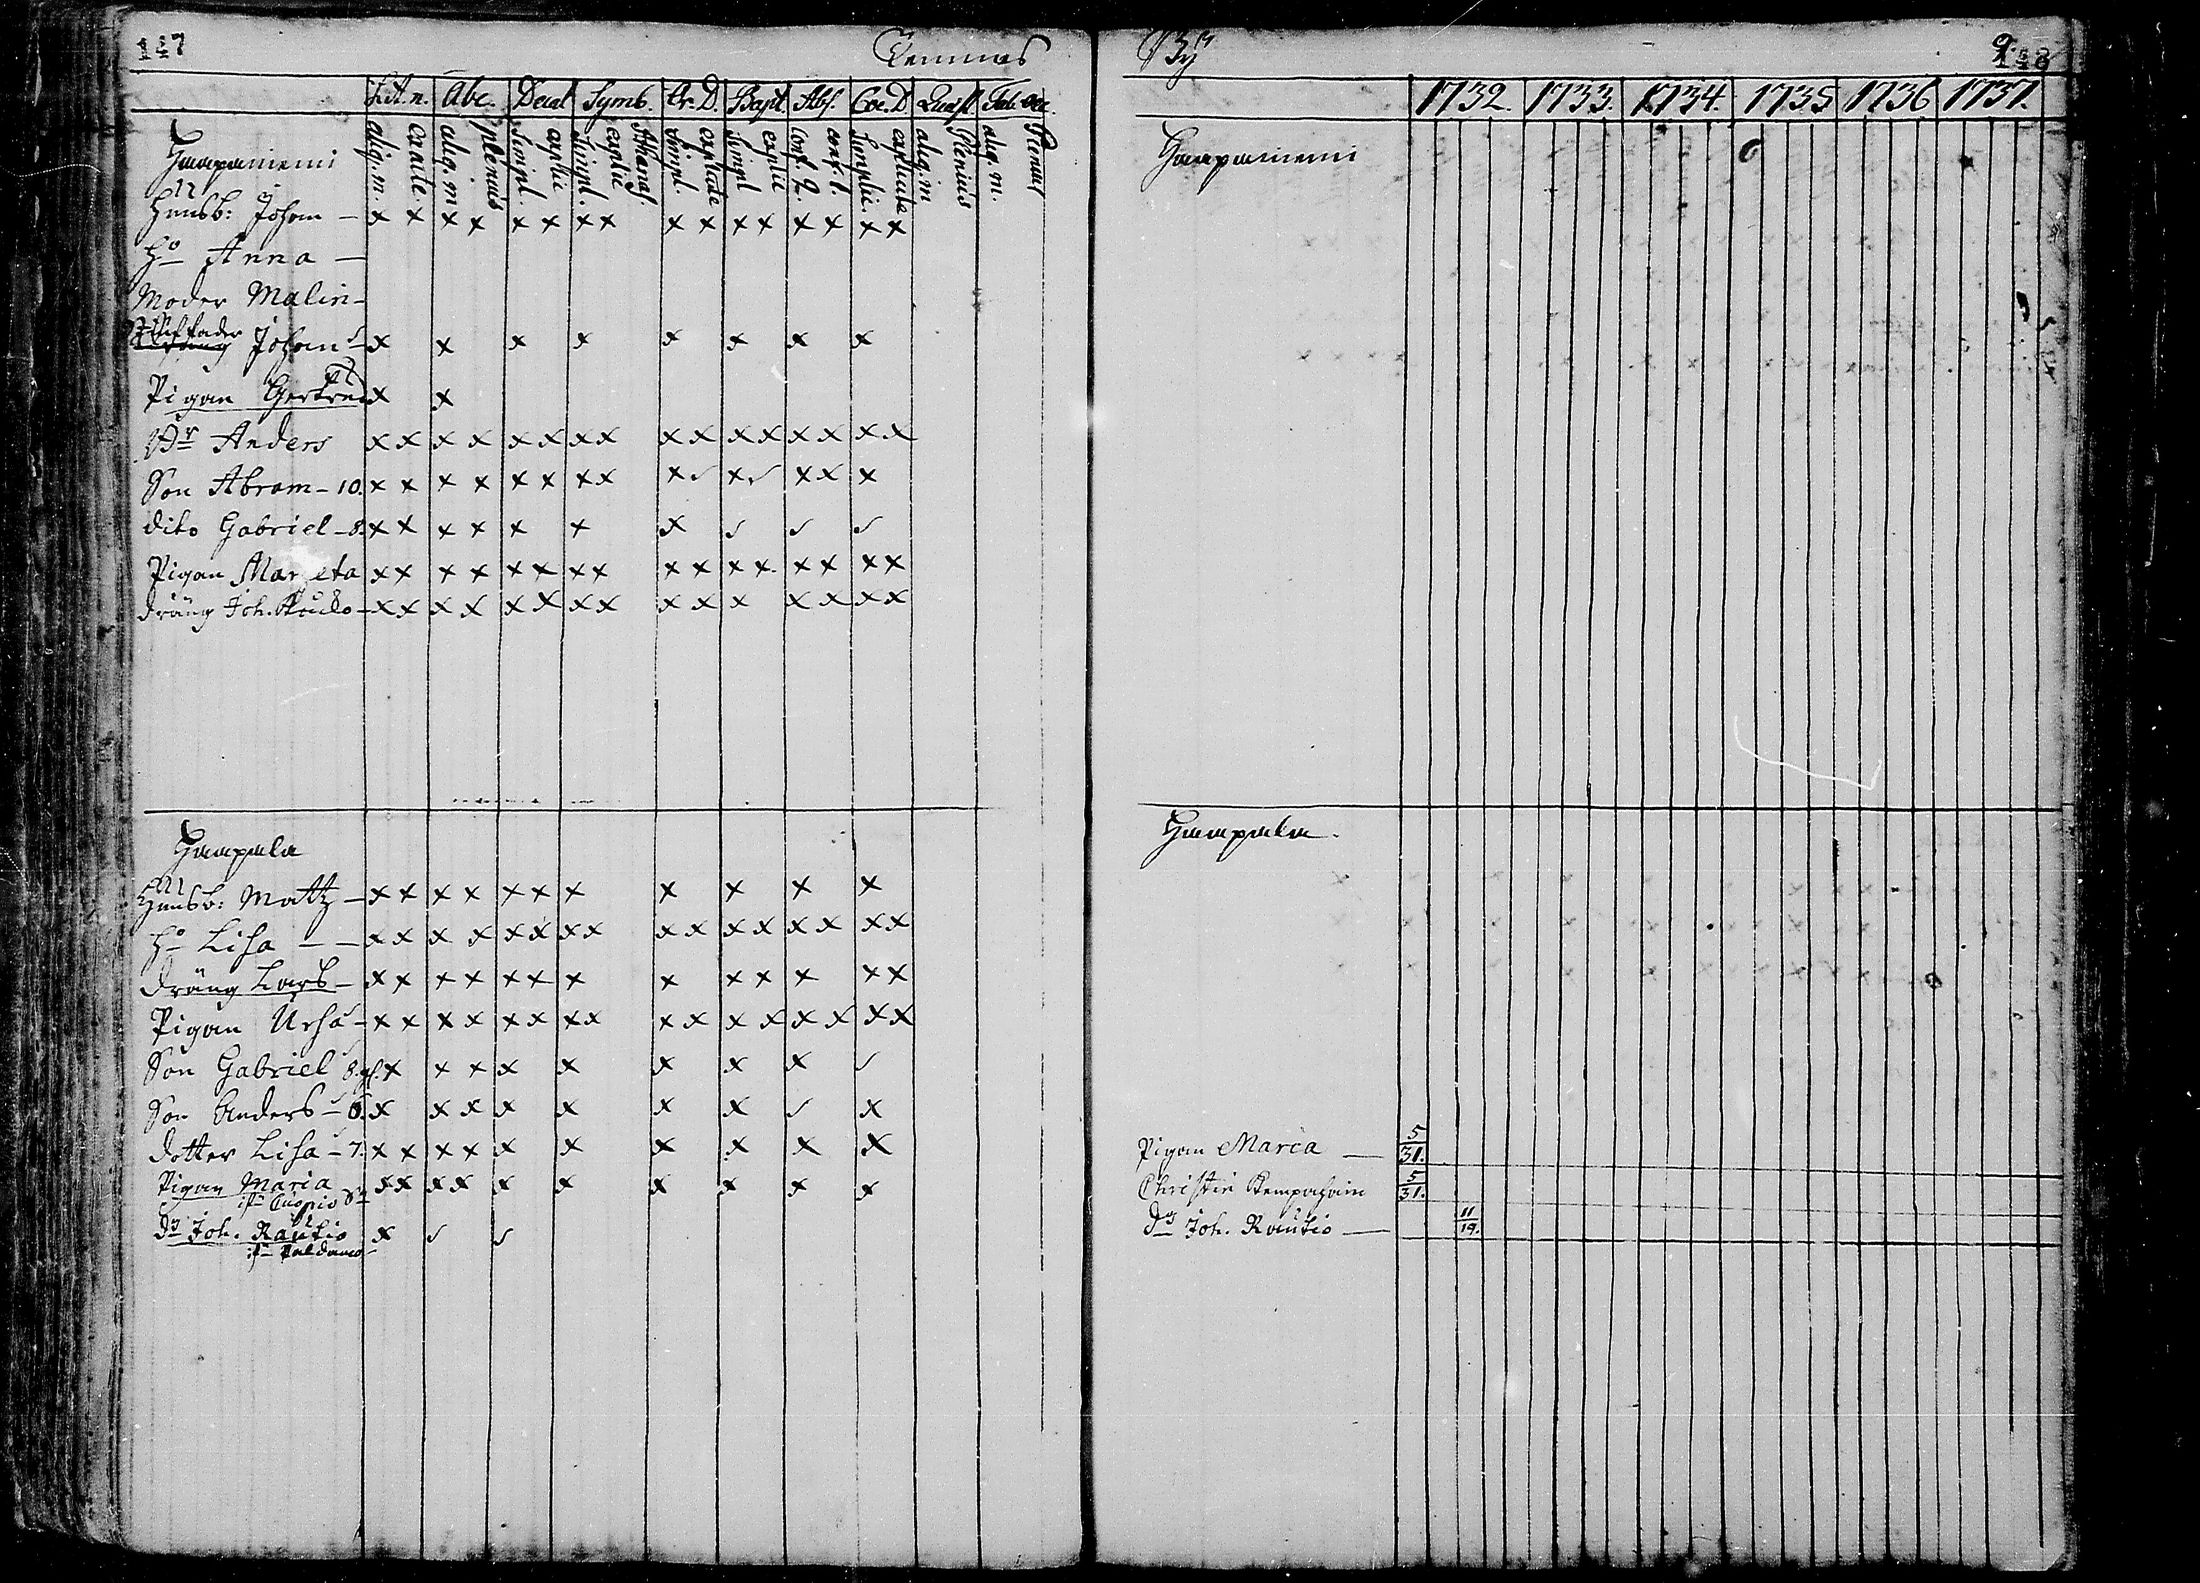 147
Temmes
Lit. n. Abc. Decal Symb. Or. D. Bapt. Abs. Coe. D. Quæst. Tab. oec.
alig. m. Exacte. aliq. m. plenius Simpl. explic Simpl. explic Athanas. Simpl. explicate Simpl explic Conf. g. conf. l. Simplic. explicate aliq. m Plenius aliq. m. Plenius
Haapaniemi
Husb: Johan — x x x x x x x x x x x x x x x x
H:o Anna —
Moder Malin –
Stiffader Johan – x x x x x x x x
Pigan Gertrud x x
Br Anders x x x x x x x x x x x x x x x x
Son Abram – 10. x x x x x x x x x √ x √ x x x
dito Gabriel – 8. x x x x x x x √ √ √
Pigan Mar eta x x x x x x x x x x x x x x x x
dräng Joh. – x x x x x x x x x x x x x x x
Haapala
Husb: Mattz – x x x x x x x x x x x
H:o Lisa – – x x x x x x x x x x x x x x x x
dräng Lars – x x x x x x x x x x x x x
Pigan Ursa – x x x x x x x x x x x x x x x x
Son Gabriel 8. x x x x x x x x √
Son Anders – 6. x x x x x x x √ x
dotter Lisa – 7. x x x x x x x x x x
Pigan Maria x x x x x x x x x x
Cuopio
Dg Joh. Rautio x √ √
Paldamo
By
148
1732. 1733. 1734. 1735 1736 1737.
Haapaniemi
Haapala.
Pigan Maria — 5/31.
Christin Kempasain 5/31.
Dg Joh. Rautio — 11/19.